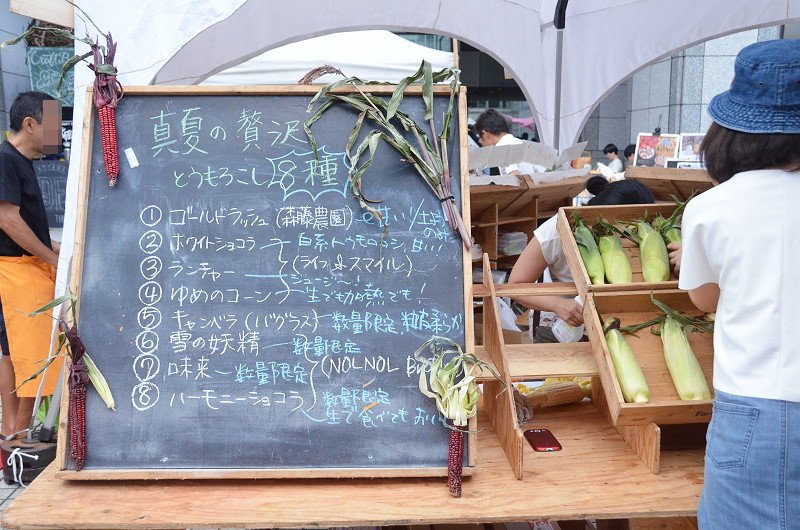 真夏の贅沢
とうもろこし 8種
① ゴールドラッシュ (森藤農園)
② ホワイトショコラ 白系トウモロコシ、甘い!
③ ランチャー (ライフ&スマイル)
ジューシ〜!
④ ゆめのコーン 生でも加熱でも!
⑤ キャンベラ (バグラス) 数量限定
⑥ 雪の妖精 数量限定
⑦ 味来 数量限定 (NOLNOL
⑧ ハーモニーショコラ 数量限定
生で食べても